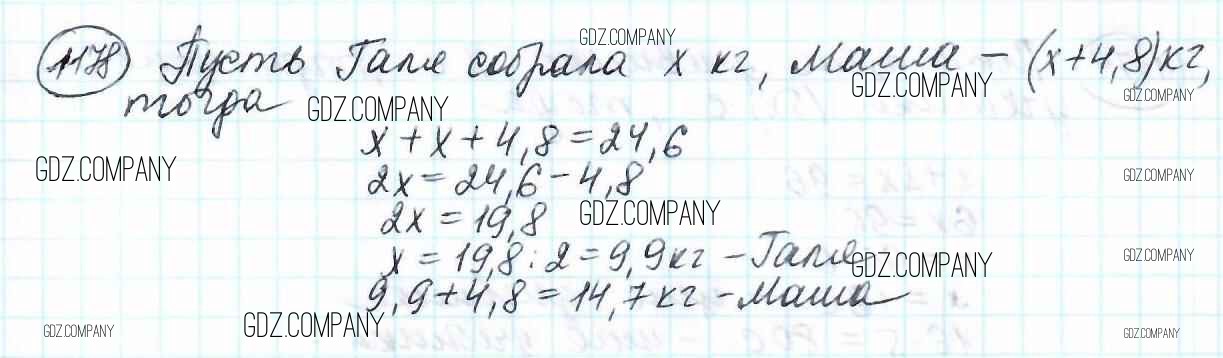 1178 Пусть Галя собрала x кг, Маша – (x+4,8)кг,
тогда
x + x + 4,8 = 24,6
2x = 24,6 – 4,8
2x = 19,8
x = 19,8 : 2 = 9,9кг – Галя
9,9+4,8 = 14,7кг – Маша
GDZ.COMPANY
GDZ.COMPANY
GDZ.COMPANY
GDZ.COMPANY
GDZ.COMPANY
GDZ.COMPANY
GDZ.COMPANY
GDZ.COMPANY
GDZ.COMPANY
GDZ.COMPANY
GDZ.COMPANY
GDZ.COMPANY